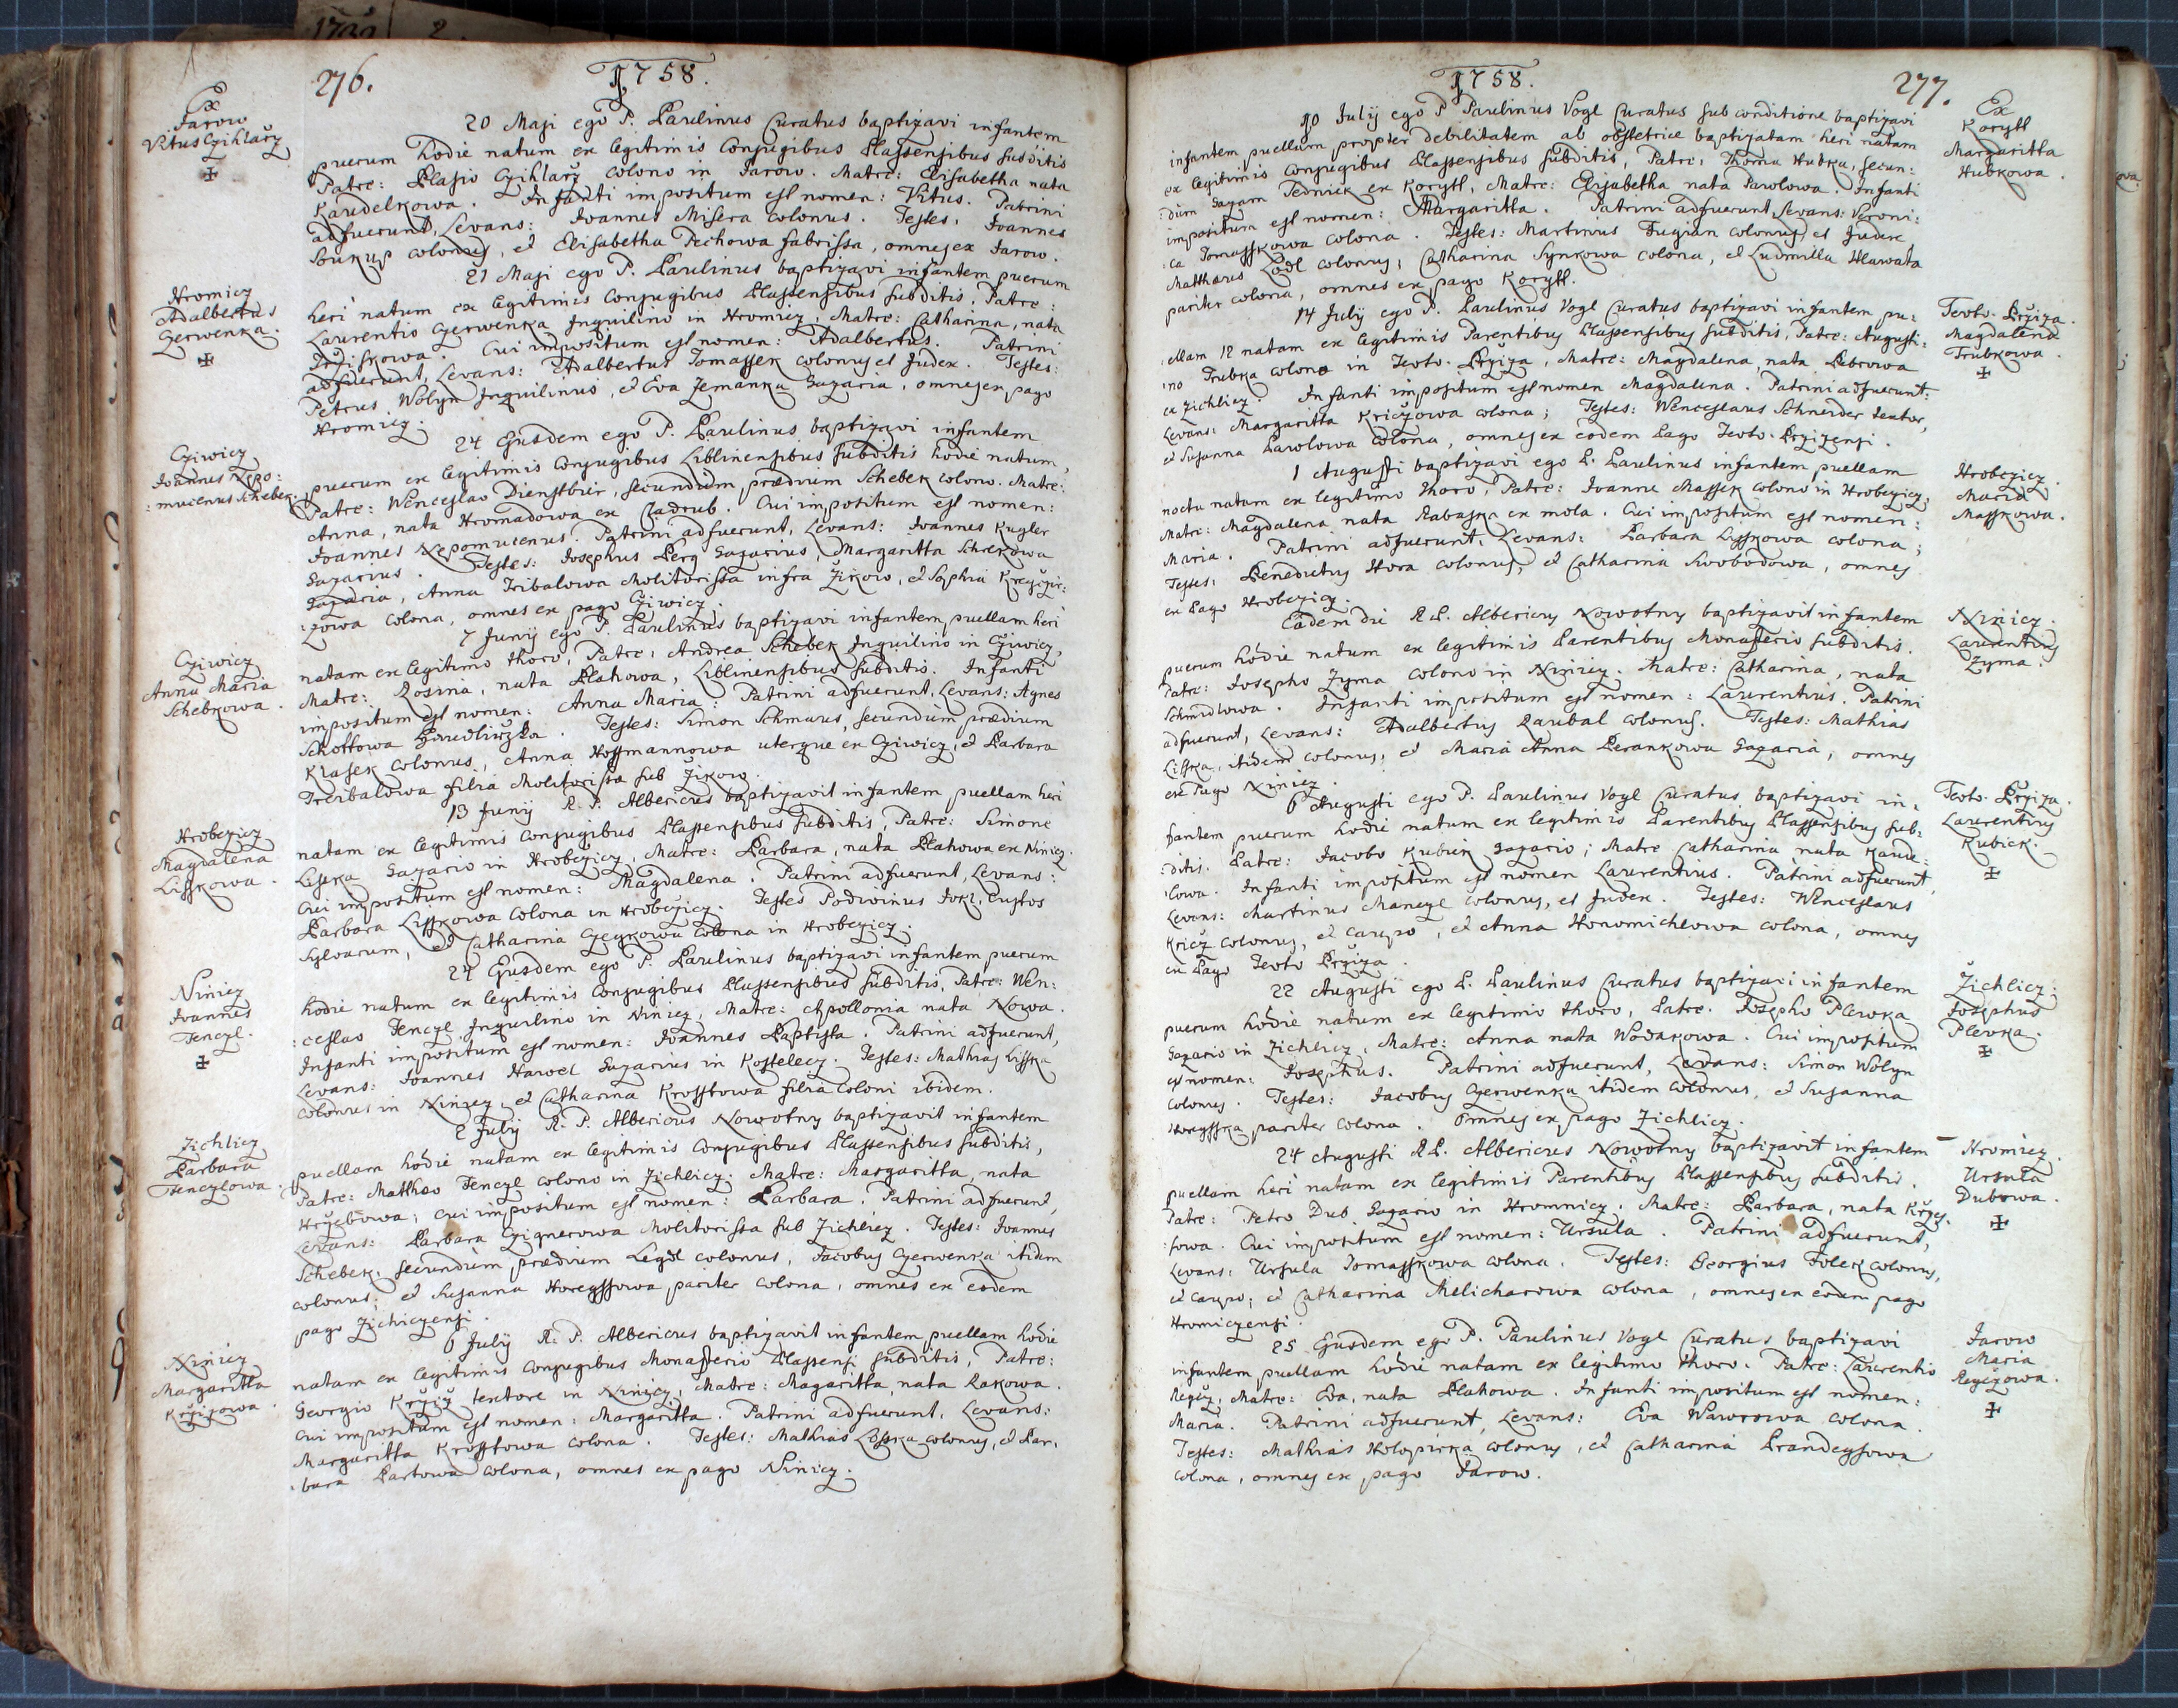 276.
1758.
Ex
Jarow
Vitus Czihlarz
20 Maji ego P. Paulinus Curatus baptizavi infantem
puerum hodie natum ex legitimis Conjugibus Plassensibus subditis
Patre: Blasio Czihlarz colono in Jarow. Matre: Elisabetha nata
Kaudelkowa. Infanti impositum est nomen: Vitus. Patrini
adfuerunt, Levans: Joannes Misera colonus. Testes: Joannes
Soukup colonus, et Elisabetha Pechowa fabrissa, omnes ex Jarow.
Hromicz
Adalbertus
Czerwenka.
21 Maji ego P. Paulinus baptizavi infantem puerum
heri natum ex legitimis Conjugibus Plassensibus subditis. Patre:
Laurentio Czerwenka Inquilino in Hromicz, Matre: Catharina, nata
Cui impositum est nomen: Adalbertus. Patrini
adfuerunt, Levans: Adalbertus Tomassek colonus et Judex. Testes:
Petrus Wolyn Inquilinus, et Eva Zemanka Gazaria, omnes ex pago
Hromicz.
Cziwicz
Joannes Nepo:
:mucenus Schebek.
24 Ejusdem ego P. Paulinus baptizavi infantem
puerum ex legitimis Conjugibus Liblinensibus subditis hodie natum,
Patre: Wenceslao Dienstbir, secundum praedium Schebek colono. Matre:
Anna, nata Hromadowa ex Cladrub. Cui impositum est nomen:
Joannes Nepomucenus. Patrini adfuerunt, Levans: Joannes Kugler
Gazarius. Testes: Josephus Berg Gazarius, Margaritta
Gazaria, Anna Tribalowa Molitorissa infra Žikow, et Sophia
:zowa colona, omnes ex pago Cziwicz.
Cziwicz
Anna Maria
Schebkowa.
7 Junij ego P. Paulinus baptizavi infantem puellam heri
natam ex legitimo thoro, Patre: Andrea Schebek Inquilino in Cziwicz,
Matre: Rosina, nata Blahowa, Liblinensibus subditis. Infanti
impositum est nomen: Anna Maria: Patrini adfuerunt, Levans: Agnes
Schottowa. Testes: Simon Schmaus, secundum praedium
Klasek colonus, Anna Hoffmannowa uterque ex Cziwicz, et Barbara
Treibalowa filia Molitorissa sub Žikow.
Hrobczicz
Magdalena
Lisskowa.
13 Junij R. P. Albericus baptizavit infantem puellam heri
natam ex legitimis Conjugibus Plassensibus subditis, Patre: Simone
Lisska Gazario in Hrobczicz, Matre: Barbara, nata Blahowa ex Ninicz.
Cui impositum est nomen: Magdalena. Patrini adfuerunt, Levans:
Barbara Lisskowa Colona in Hrobczicz. Testes Podiwinus Jokl, Custos
Sylvarum, et Catharina Czeykowa Colona in Hrobczicz.
Ninicz
Joannes
Fenczl.
24 Ejusdem ego P. Paulinus baptizavi infantem puerum
hodie natum ex legitimis Conjugibus Plassensibus subditis, Patre: Wen:
:ceslao Fenczl Inquilino in Ninicz, Matre: Apollonia nata Nowa.
Infanti impositum est nomen: Joannes Baptista. Patrini adfuerunt,
Levans: Joannes Hawel Gazarius in Kostelecz. Testes: Mathias Lisska
colonus in Ninicz, et Catharina Krosstowa filia Coloni ibidem.
Zichlicz
Barbara
Fenczlowa.
2 Julij R. P. Albericus Nowotny baptizavit infantem
puellam hodie natam ex legitimis Conjugibus Plassensibus subditis,
Patre: Matthæo Fenczl colono in Zichlicz. Matre: Margaritta nata
cui impositum est nomen: Barbara. Patrini adfuerunt,
Levans: Barbara Molitorissa sub Zichlicz. Testes: Joannes
Schebek, secundum praedium Legdl colonus, Jacobus Czerwenka itidem
colonus, et Susanna Horeyssowa pariter colona, omnes ex eodem
pago Zichiczensi.
Ninicz
Margaritta
Kržižowa.
6 Julij R. P. Albericus baptizavit infantem puellam hodie
natam ex legitimis Conjugibus Monasterio Plassensi subditis, Patre:
Georgio Kržiž textore in Ninicz, Matre: Magaritta, nata Rakowa.
Cui impositum est nomen: Margaritta. Patrini adfuerunt, Levans:
Margaritta Krosstowa colona. Testes: Mathias Lisska colonus, et Bar:
:bara Bartowa colona, omnes ex pago Ninicz.
1758.
277.
Ex
Korytt
Margaritta
Hubkowa.
10 Julij ego P Paulinus Vogl Curatus sub conditione baptizavi
infantem puellam propter debilitatem ab obstetrice baptizatam heri natam
ex legitimis Conjugibus Plassensibus subditis, Patre: Thoma Hubka, secun:
:dum Gazam Fednick ex Korytt, Matre: Elisabetha nata Pawlowa. Infanti
impositum est nomen: Margaritta. Patrini adfuerunt, Levans: Veroni:
:ca Tomasskowa colona. Testes: Martinus Fugian colonus et Judex
Matthæus Lodl colonus, Catharina Synkowa colona, et Ludmilla Hlawata
pariter colona, omnes ex pago Korytt.
Teuto: Bržiza.
Magdalena
Trubkowa.
14 Julij ego P. Paulinus Vogl Curatus baptizavi infantem pu:
:ellam 12 natam ex legitimis Parentibus Plassensibus subditis, Patre: Augusti:
:no Trubka colono in Teuto: Bržiza, Matre: Magdalena, nata Bebrowa
ex Zichlicz. Infanti impositum est nomen Magdalena. Patrini adfuerunt:
Levans: Margaritta Kriczowa colona; Testes: Wenceslaus Schneider textor,
et Susanna Pawlowa colona, omnes ex eodem Pago Teuto: Brzizensi.
Hrobczicz.
Maria
Masskowa.
1 Augusti baptizavi ego P. Paulinus infantem puellam
noctu natam ex legitimo thoro, Patre: Joanne Massek colono in Hrobczicz,
Matre: Magdalena nata Rabaska ex mola. Cui impositum est nomen:
Maria. Patrini adfuerunt, Levans: Barbara Lisskowa colona;
Testes: Benedictus Hora colonus, et Catharina Swobodowa, omnes
ex Pago Hrobczicz.
Ninicz.
Laurentius
Zyma.
Eadem die R P. Albericus Nowotny baptizavit infantem
puerum hodie natum ex legitimis Parentibus Monasterio subditis.
Patre: Josepho Zyma colono in Ninicz. Matre: Catharina, nata
Schmidlowa. Infanti impositum est nomen: Laurentius. Patrini
adfuerunt, Levans: Adalbertus Raubal colonus. Testes: Mathias
Lisska, itidem colonus, et Maria Anna Berankowa Gazaria, omnes
ex Pago Ninicz.
Teuto: Bržiza.
Laurentius
Kubick.
6 Augusti ego P. Paulinus Vogl Curatus baptizavi in:
fantem puerum hodie natum ex legitimis Parentibus Plassensibus sub:
:ditis. Patre: Jacobo Kubick Gazario; Matre Catharina nata Kaude:
:lowa. Infanti impositum est nomen Laurentius. Patrini adfuerunt,
Levans: Martinus Manczl colonus, et Judex. Testes: Wenceslaus
Kricz colonus, et caupo, et Anna Honomichlowa colona, omnes
ex Pago Teuto Bržiza.
Žichlicz:
Josephus
Plewka.
22 Augusti ego P. Paulinus Curatus baptizavi infantem
puerum hodie natum ex legitimo thoro, Patre. Josepho Plewka
Gazario in Zichlicz, Matre: Anna nata Wodakowa. Cui impositum
est nomen: Josephus. Patrini adfuerunt, Levans: Simon Wolyn
Colonus. Testes: Jacobus Czerwenka itidem colonus, et Susanna
Horeysska pariter colona. Omnes ex pago Zichlicz.
Hromicz.
Ursula
Dubowa.
24 Augusti R P. Albericus Nowotny baptizavit infantem
puellam heri natam ex legitimis Parentibus Plassensibus subditis.
Patre: Petro Dub Gazario in Hromnicz. Matre: Barbara, nata
:sowa. Cui impositum est nomen: Ursula. Patrini adfuerunt,
Levans: Ursula Tomasskowa colona. Testes: Georgius Folek colonus,
et caupo; et Catharina Melicharowa colona, omnes ex eodem pago
Hromiczensi.
Jarow
Maria
25 Ejusdem ego P. Paulinus Vogl Curatus baptizavi
infantem puellam hodie natam ex legitimo thoro. Patre: Laurentio
Matre: Eva, nata Blahowa. Infanti impositum est nomen:
Maria. Patrini adfuerunt, Levans: Eva Wawrowa colona.
Testes: Mathias Holopirka colonus, et Catharina Brandeysowa
colona, omnes ex pago Jarow.